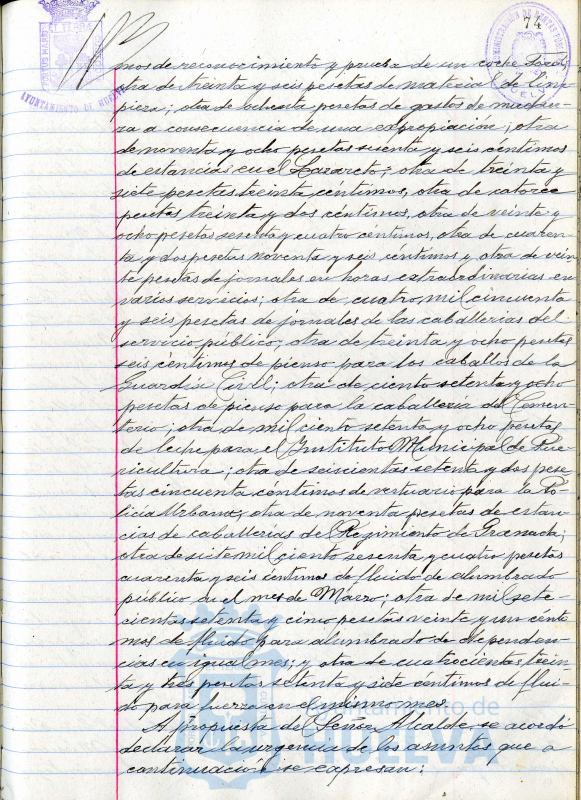 74
AYUNTAMIENTO DE HUELVA
mos de reconocimiento y prueba de un coche Local;
otra de treinta y seis pesetas de material de lim
pieza; otra de ochenta pesetas de gastos de mudan
za a consecuencia de una expropiación; otra
de noventa y ocho pesetas sesenta y seis centimos
de estancias en el Lazareto; otra de treinta y
siete pesetas treinta céntimos, otra de catorce
pesetas treinta y dos céntimos, otra de veinte y
ocho pesetas sesenta y cuatro céntimos, otra de cuaren
ta y dos pesetas noventa y seis centimos y otra de vein
te pesetas de jornales en horas extraordinarias en
varios servicios; otra de cuatro mil cincuenta
y seis pesetas de jornales de las caballerias del
servicio público; otra de treinta y ocho pesetas
seis céntimos de pienso para los caballos de la
Guardia Civil; otra de ciento setenta y ocho
pesetas de pienso para la caballeria del Cemen
terio; otra de mil ciento setenta y ocho pesetas
de leche para el Instituto Municipal de Pue
ricultura; otra de seiscientas setenta y dos pese
tas cincuenta céntimos de vestuario para la Po
licia Urbana; otra de noventa pesetas de estan
cias de caballerias de Regimiento de Granada;
otra de siete mil ciento sesenta y cuatro pesetas
cuarenta y seis centimos de fluido de alumbrado
público en el mes de Marzo; otra de mil sete
cientas setenta y cinco pesetas veinte y un cénti
mos de fluido para alumbrado de dependen
cias en igual mes; y otra de cuatrocientas trein
ta y tres pesetas setenta y siete céntimos de flui
do para fuerza en el mismo mes.
A propuesta del Señor Alcalde, se acordó
declarar la urgencia de los asuntos que a
continuación se expresan:
Ayuntamiento de
HUELVA